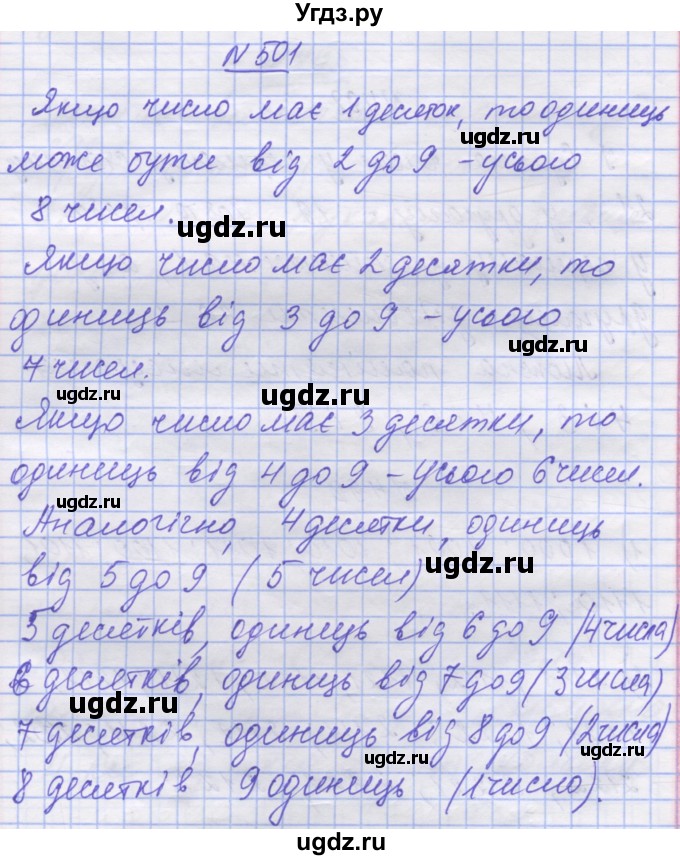 Угдз.ру
N 501
Якщо число має 1 десяток, то одиниць
ugdz.ru
може бути від 2 до 9 – усього
8 чисел.
ugdz.ru
Якщо число має 2 десятки, то
одиниць від 3 до 9 – усього
ugdz.ru
7 чисел.
ugdz.ru ugdz.ru
Якщо число має 3 десятки, то
одиниць від 4 до 9 – Усього 6 чисел.
ugdz.ru
Аналогічно, 4 десятки, одиниць
від 5 до 9 (5 чисел)
ugdz.ru
5 десятків, одиниць від 6 до 9 (4 числа)
6 десятків, одиниць від 7 до 9 (3 числа)
ugdz.ru
7 десятків, одиниць від 8 до 9 (2 числа)
ugdz.ru
8 десятків 9 одиниць (1 число).
ugdz.ru
ugdz.ru